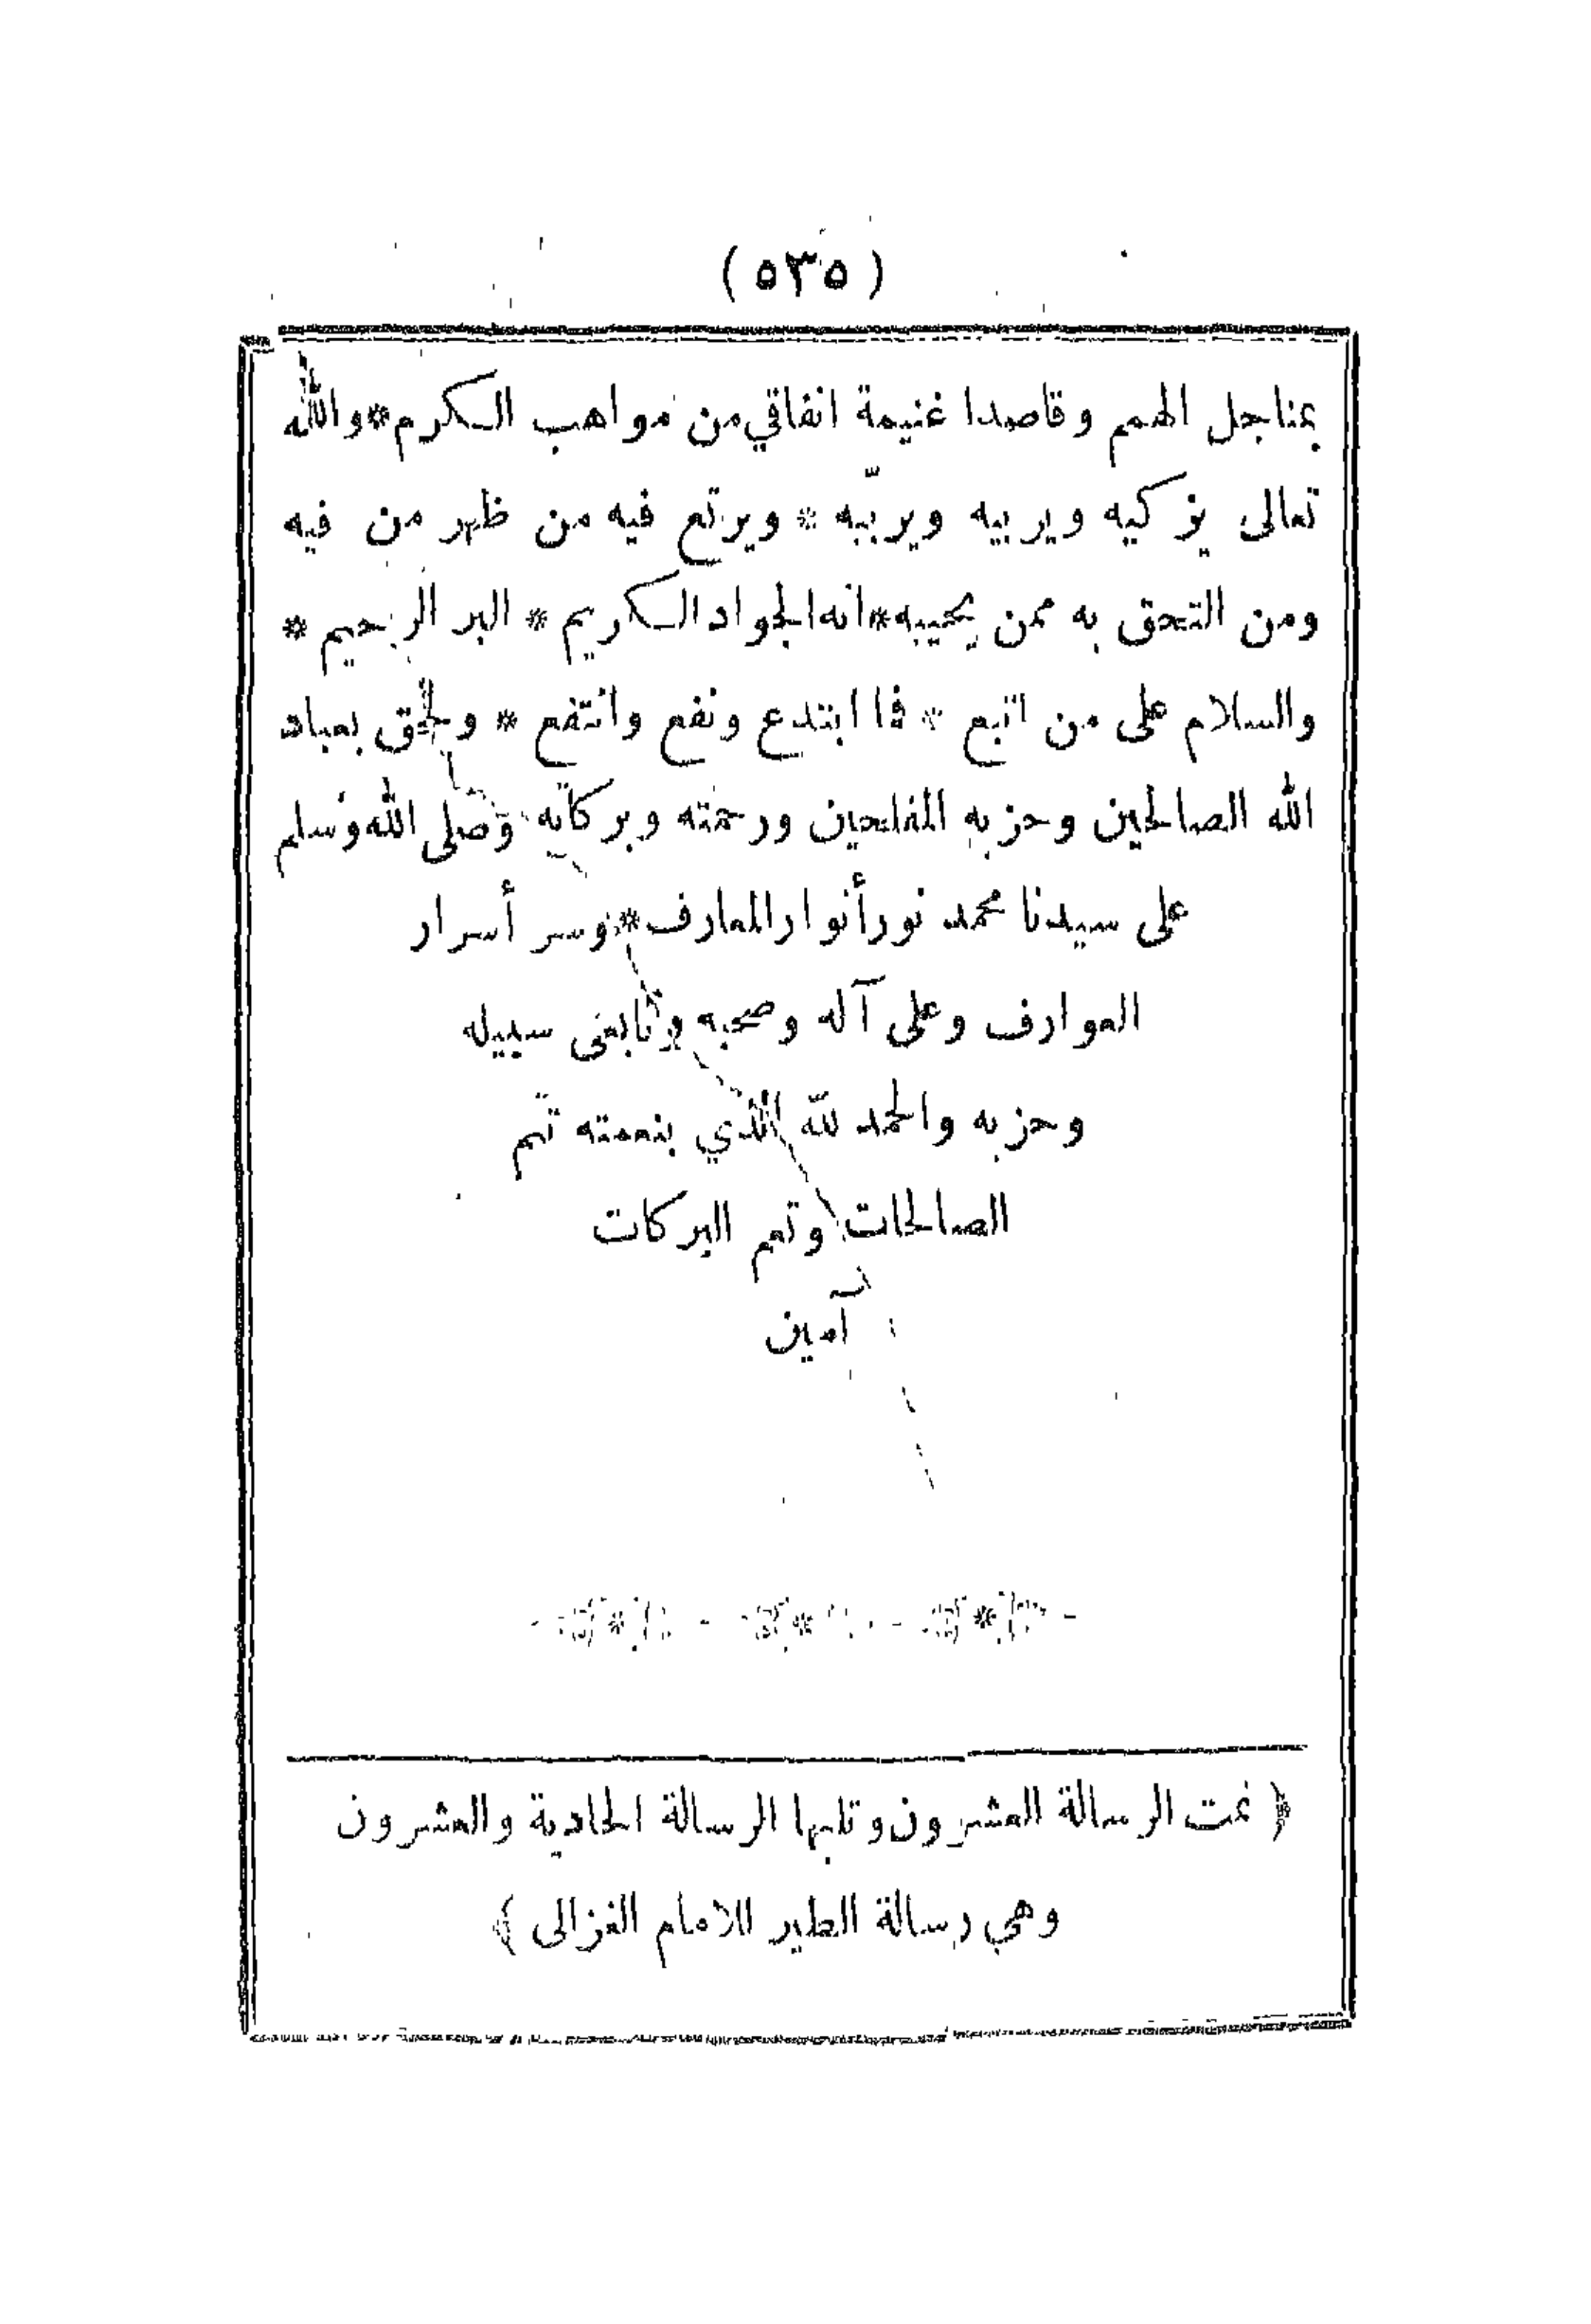 (٥٣٥)
بمناجل الهمم وقاصدا غنيمة انفاقي من مواهب الكرم * والله
تعالى يزكيه ويربيه ويربّبه * ويرتع فيه من ظهر من فيه
ومن التحق به ممن يحيبه * انه الجواد الكريم * البر الرحيم *
والسلام على من اتبع * فما ابتدع ونفع وانتفع * ولحق بعباد
الله الصالحين وحزبه المفلحين ورحمته وبركاته وصلى الله وسلم
على سيدنا محمد نور أنوار المعارف * وسر أسرار
العوارف وعلى آله وصحبه وتابعى سبيله
وحزبه والحمد لله الذي بنعمته تتم
الصالحات وتعم البركات
آمين
﴿ تمت الرسالة العشرون وتليها الرسالة الحادية والعشرون
وهي رسالة الطير للامام الغزالى ﴾